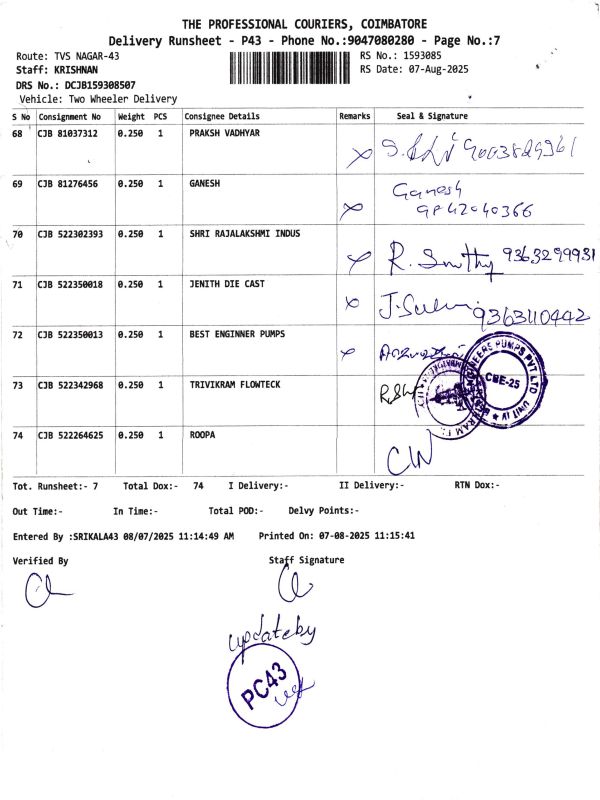 THE PROFESSIONAL COURIERS, COIMBATORE
Delivery Runsheet - P43 - Phone No.:9047080280 - Page No.:7
Route: TVS NAGAR-43 RS No.: 1593085
Staff: KRISHNAN RS Date: 07-Aug-2025
DRS No.: DCJB159308507
Vehicle: Two Wheeler Delivery
S No Consignment No Weight PCS Consignee Details Remarks Seal & Signature
68 CJB 81037312 0.250 1 PRAKSH VADHYAR
69 CJB 81276456 0.250 1 GANESH Ganesh
9842040366
70 CJB 522302393 0.250 1 SHRI RAJALAKSHMI INDUS 9363299931
71 CJB 522350018 0.250 1 JENITH DIE CAST
9363110442
72 CJB 522350013 0.250 1 BEST ENGINNER PUMPS BEST ENGINEERS PUMPS PVT LTD UNIT IV CBE-25
73 CJB 522342968 0.250 1 TRIVIKRAM FLOWTECK
74 CJB 522264625 0.250 1 ROOPA
Tot. Runsheet:- 7 Total Dox:- 74 I Delivery:- II Delivery:- RTN Dox:-
Out Time:- In Time:- Total POD:- Delvy Points:-
Entered By :SRIKALA43 08/07/2025 11:14:49 AM Printed On: 07-08-2025 11:15:41
Verified By Staff Signature
updateby
PC43